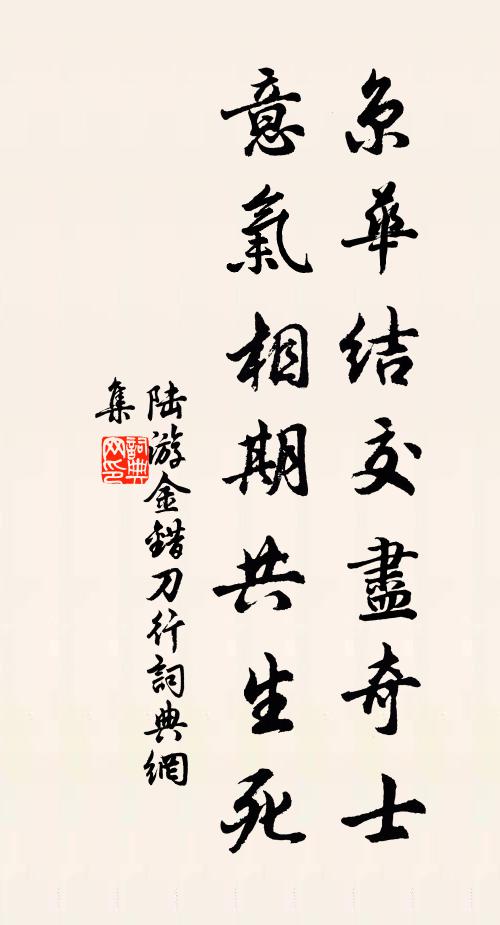 京華結交盡奇士
意氣相期共生死
陆游金錯刀行詞典網
集
詞典
网印